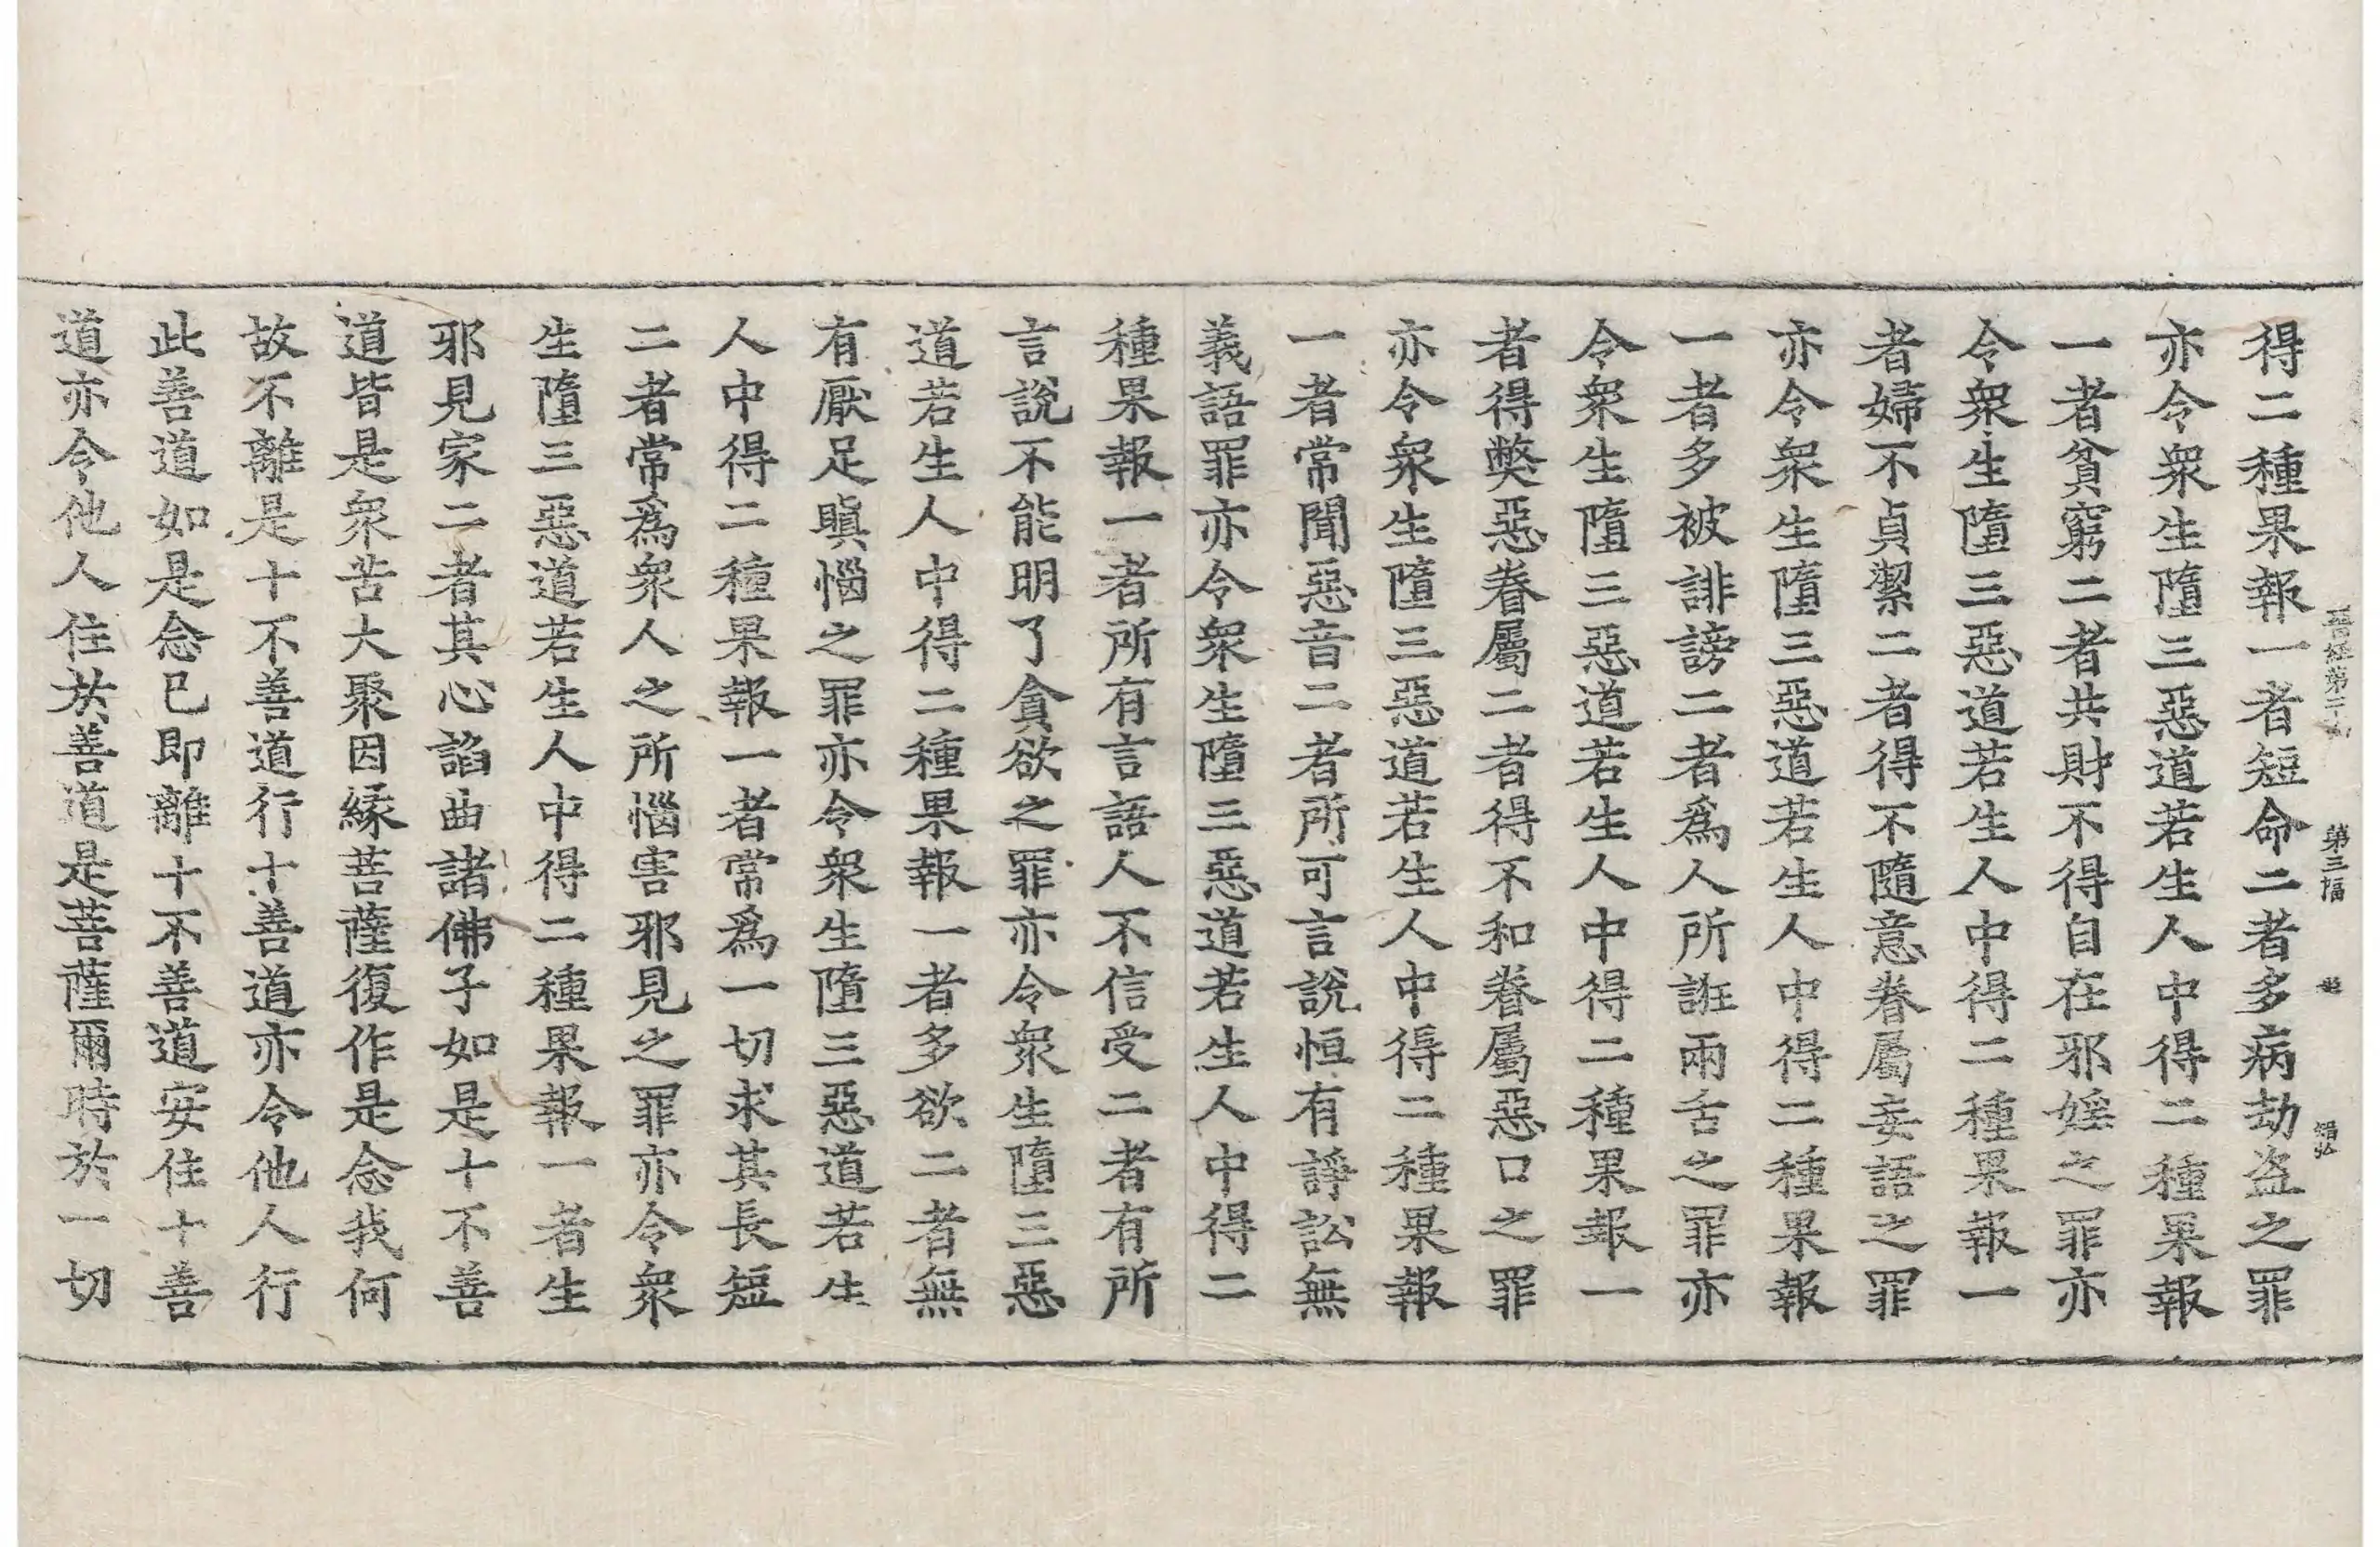 晉經第二十 第三幅
得二種果報一者短命二者多病劫盗之罪
亦令衆生墮三惡道若生人中得二種果報
一者貧窮二者共財不得自在邪婬之罪亦
令衆生墮三惡道若生人中得二種果報一
者婦不貞絜二者得不隨意眷屬妄語之罪
亦令衆生墮三惡道若生人中得二種果報
一者多被誹謗二者爲人所誑兩舌之罪亦
令衆生墮三惡道若生人中得二種果報一
者得弊惡眷屬二者得不和眷屬惡口之罪
亦令衆生墮三惡道若生人中得二種果報
一者常聞惡音二者所可言說恒有諍訟無
義語罪亦令衆生墮三惡道若生人中得二
種果報一者所有言語人不信受二者有所
言說不能明了貪欲之罪亦令衆生墮三惡
道若生人中得二種果報一者多欲二者無
有厭足瞋惱之罪亦令衆生墮三惡道若生
人中得二種果報一者常爲一切求其長短
二者常爲衆人之所惱害邪見之罪亦令衆
生墮三惡道若生人中得二種果報一者生
邪見家二者其心諂曲諸佛子如是十不善
道皆是衆苦大聚因緣菩薩復作是念我何
故不離是十不善道行十善道亦令他人行
此善道如是念已即離十不善道安住十善
道亦令他人住於善道是菩薩爾時於一切